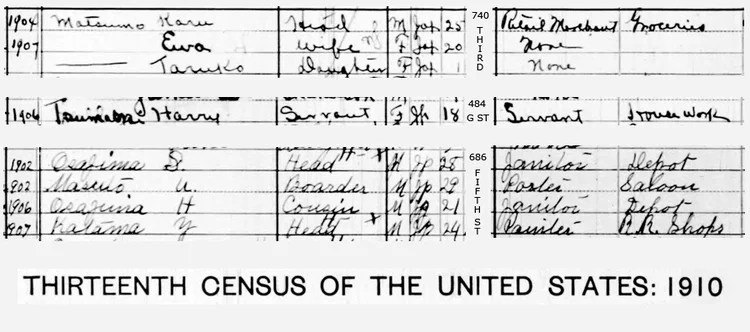 1904 Matsumo Karu Head M Jap 25 740 THIRD Retail Merchant Groceries
1907 Ewa Wife F Jap 20 None
Taruko Daughter F Jap 1 None
1906 Harry Servant 18 484 G ST Servant House Work
1902 Osajima S. Head M Jp 28 686 FIFTH ST Janitor Depot
902 Masuio U. Boarder M Jp 29 Porter Saloon
1906 Osajima H Cousin M Jp 21 Janitor Depot
907 Katama Y Head M Jp 24 Painter R.R. Shops
THIRTEENTH CENSUS OF THE UNITED STATES: 1910